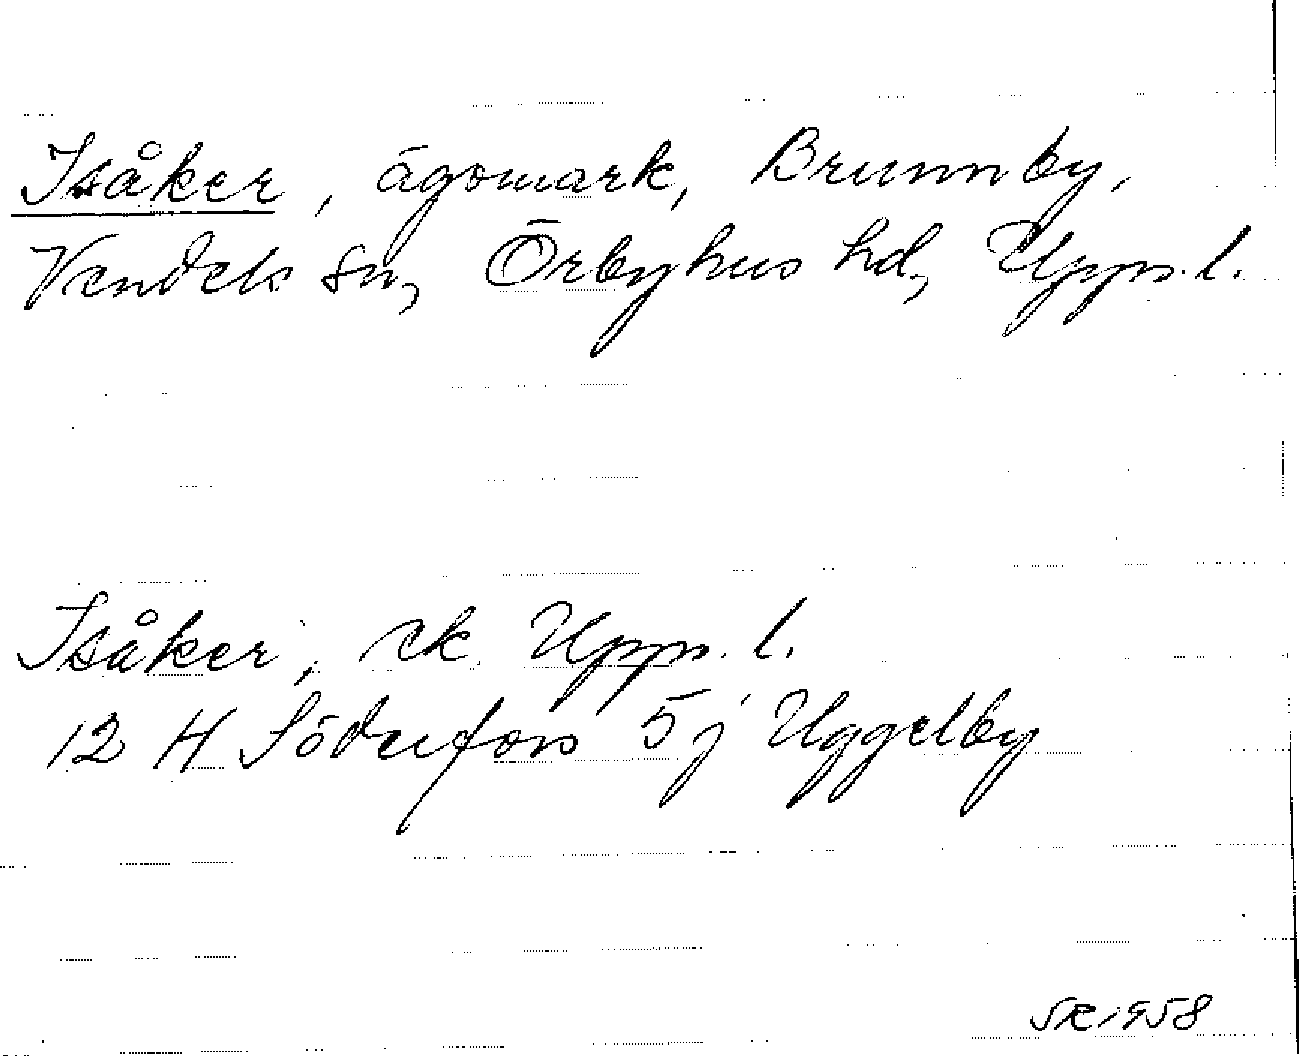 Isåker, ägomark, Brunnby,
Vendels sn, Örbyhus hd, Upps.l.
Isåker, ek Upps.l.
12 H Söderfors 5j Uggelby
1958